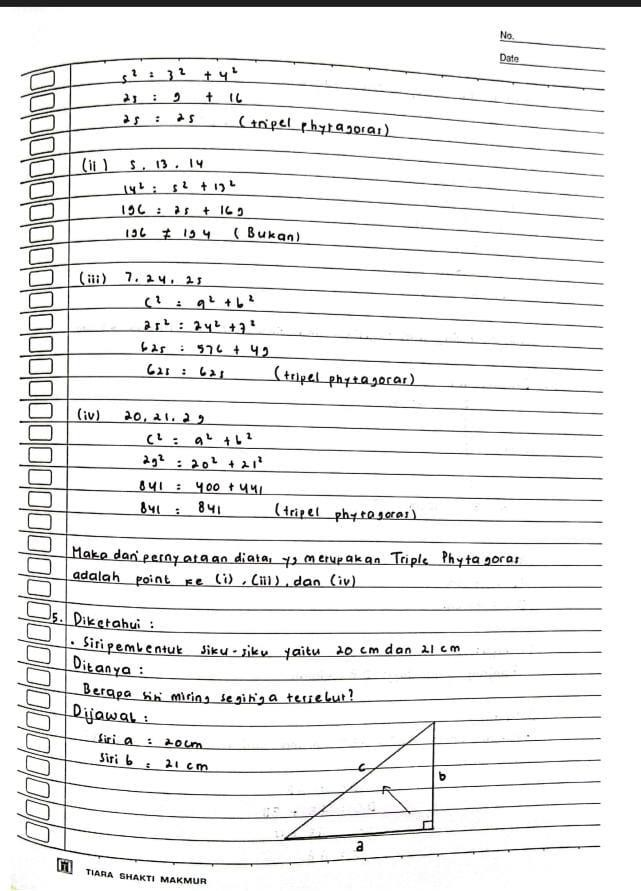 No.
Date
5² = 3² + 4²
25 = 9 + 16
25 = 25 (tripel phytagoras)
(ii) 5, 13, 14
14² = 5² + 13²
196 = 25 + 169
196 ≠ 194 (Bukan)
(iii) 7, 24, 25
c² = a² + b²
25² = 24² + 7²
625 = 576 + 49
625 = 625 (tripel phytagoras)
(iv) 20, 21, 29
c² = a² + b²
29² = 20² + 21²
841 = 400 + 441
841 = 841 (tripel phytagoras)
Maka dari pernyataan diatas yg merupakan Triple Phytagoras
adalah point ke (i), (iii), dan (iv)
5. Diketahui :
• Sisi pembentuk siku-siku yaitu 20 cm dan 21 cm
Ditanya :
Berapa sisi miring segitiga tersebut?
Dijawab :
Sisi a = 20cm
Sisi b = 21 cm
c
b
a
TIARA SHAKTI MAKMUR